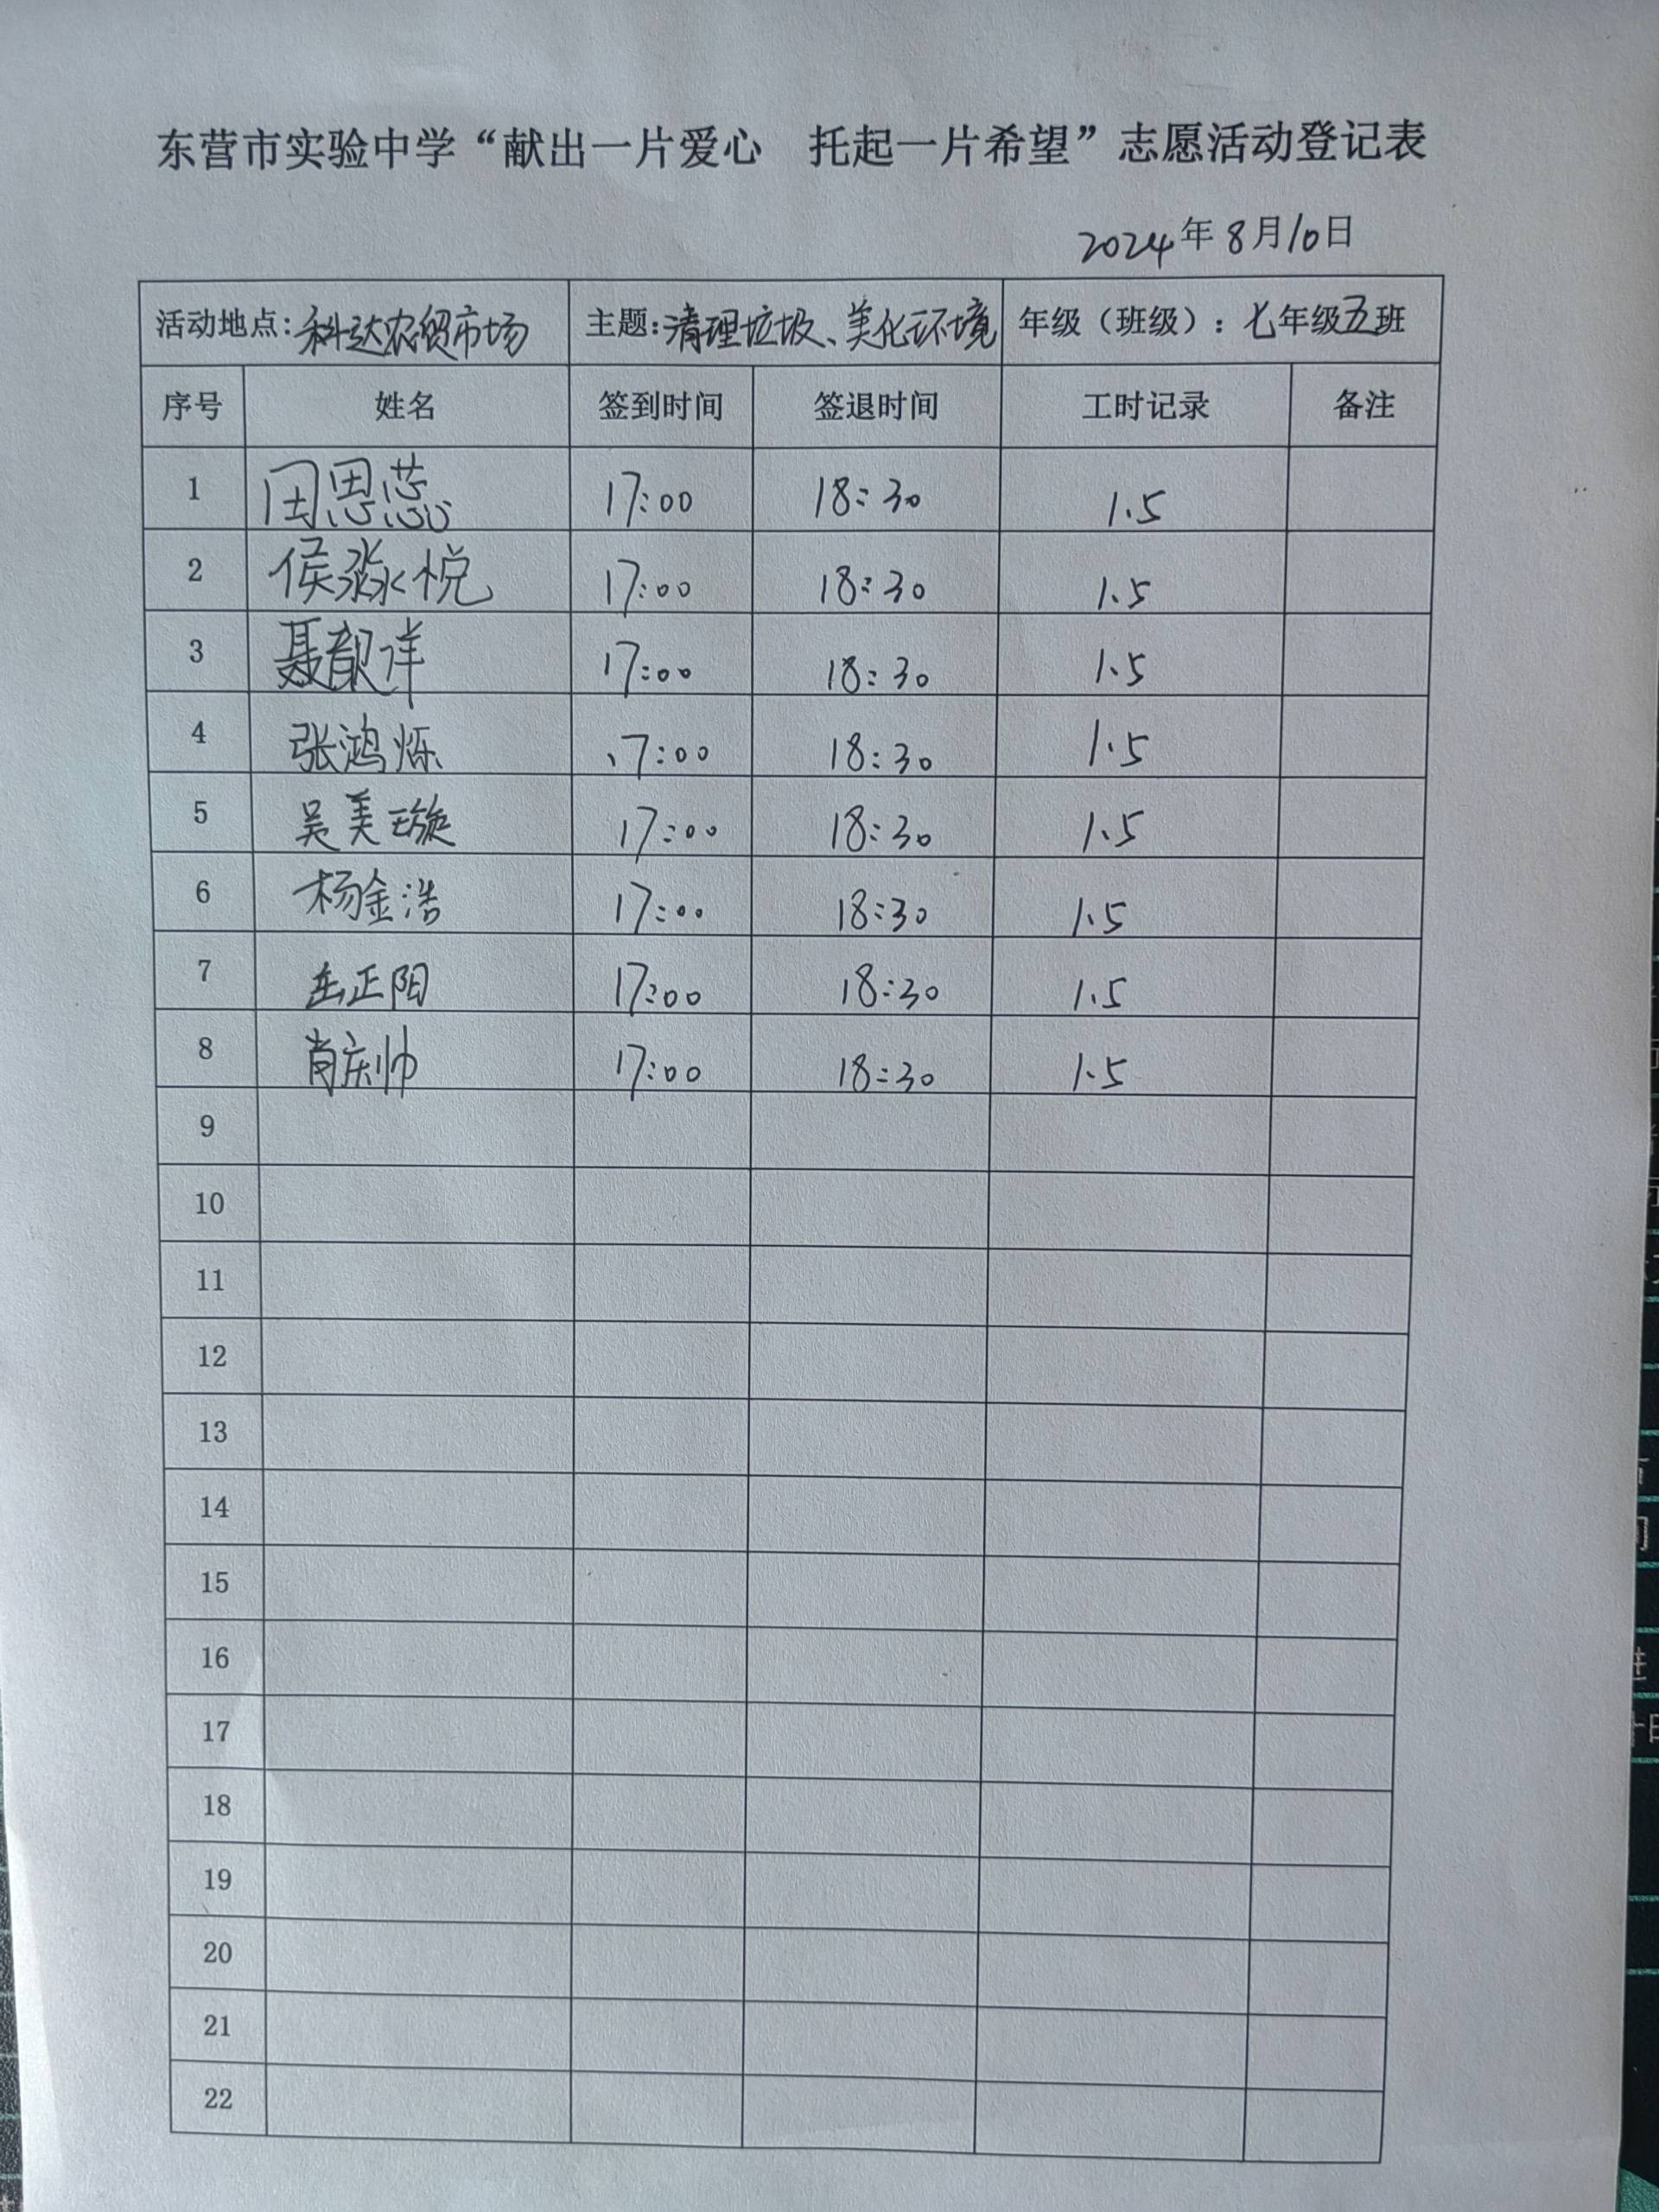 东营市实验中学“献出一片爱心 托起一片希望”志愿活动登记表
2024年8月10日
活动地点:科达农贸市场 主题:清理垃圾、美化环境 年级（班级）:七年级五班
序号 姓名 签到时间 签退时间 工时记录 备注
1 田思蕊 17:00 18:30 1.5
2 侯淼悦 17:00 18:30 1.5
3 聂靓洋 17:00 18:30 1.5
4 张鸿烁 17:00 18:30 1.5
5 吴美璇 17:00 18:30 1.5
6 杨金浩 17:00 18:30 1.5
7 岳正阳 17:00 18:30 1.5
8 肖庆帅 17:00 18:30 1.5
9
10
11
12
13
14
15
16
17
18
19
20
21
22